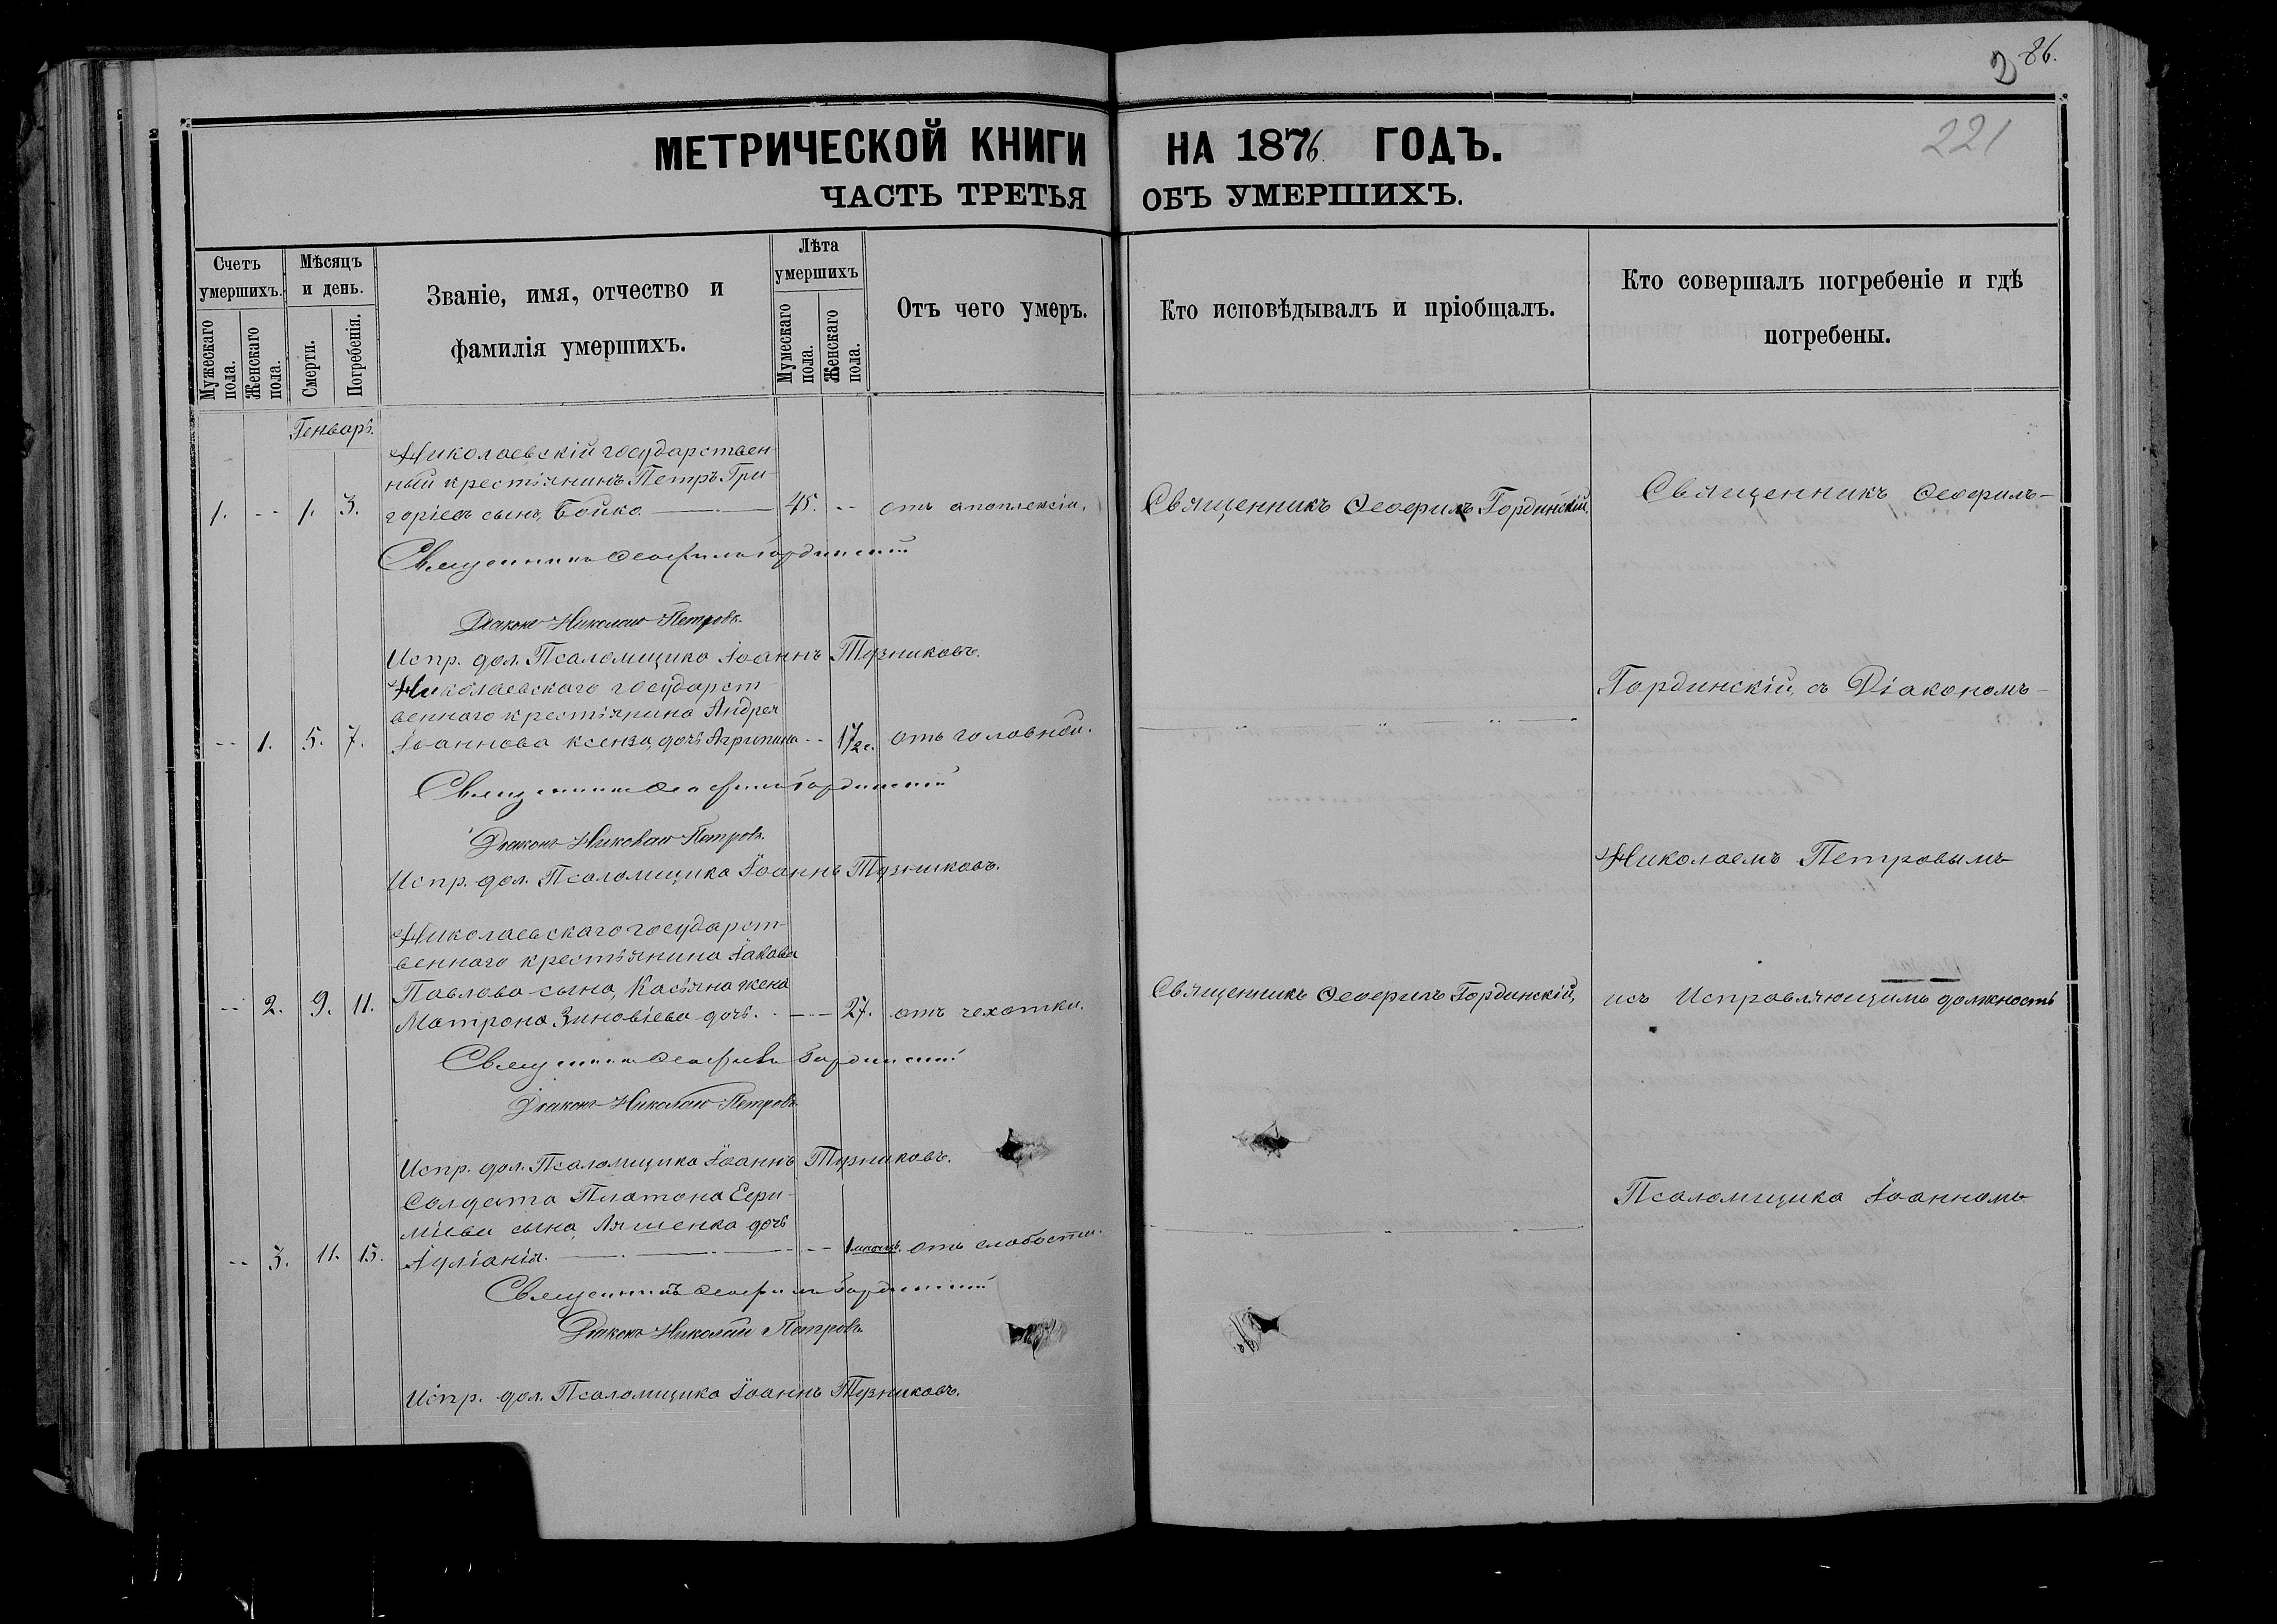 2 86.
221
МЕТРИЧЕСКОЙ КНИГИ НА 1876 ГОДЪ.
ЧАСТЬ ТРЕТЬЯ ОБЪ УМЕРШИХЪ.
Счетъ умершихъ.
Мужескаго пола.
Женскаго пола.
Мѣсяцъ и день.
Смерти.
Погребенія.
Званіе, имя, отчество и
фамилія умершихъ.
Лѣта умершихъ
Мумескаго пола.
Женскаго пола.
Отъ чего умеръ.
Кто исповѣдывалъ и пріобщалъ.
Кто совершалъ погребеніе и гдѣ
погребены.
Генварь.
Николаевскій государствен
ный крестьянинъ Петръ Гри
1. -- 1. 3. горіевъ сынъ, Бойко 45. -- отъ апоплексіи. Священникъ Ѳеофилъ Гординскій. Священникъ Ѳеофилъ
Священникъ Ѳеофилъ Гординскій
Діаконъ Николай Петровъ.
Испр. дол. Псаломщика Іоаннъ Тузниковъ.
Николаевскаго государст-
веннаго крестьянина Андрея
Гординскій, съ Діакономъ
-- 1. 5. 7. Іоаннова Ксенза, дочь Агрипина -- 1/2 г. отъ головной.
Священникъ Ѳеофилъ Гординскій
Діаконъ Николай Петровъ.
Николаемъ Петровымъ
Испр. дол. Псаломщика Іоаннъ Тузниковъ.
Николаевскаго государст-
веннаго крестьянина Іакова
Павлова сына, Касьяна жена
-- 2. 9. 11. Матрона Зиновіева дочь. -- 27. отъ чехотки. Священникъ Ѳеофилъ Гординскій, исъ Исправляющимъ должность
Священникъ Ѳеофилъ Гординскій
Діаконъ Николай Петровъ.
Испр. дол. Псаломщика Іоаннъ Тузниковъ.
Солдата Платона Ефи-
міева сына, Ляшенка дочь
Псаломщика Іоанномъ
-- 3. 11. 13. Іуліанія. -- 1 мѣсяцъ. отъ слабости.
Священникъ Ѳеофилъ Гординскій
Діаконъ Николай Петровъ.
Испр. дол. Псаломщика Іоаннъ Тузниковъ.